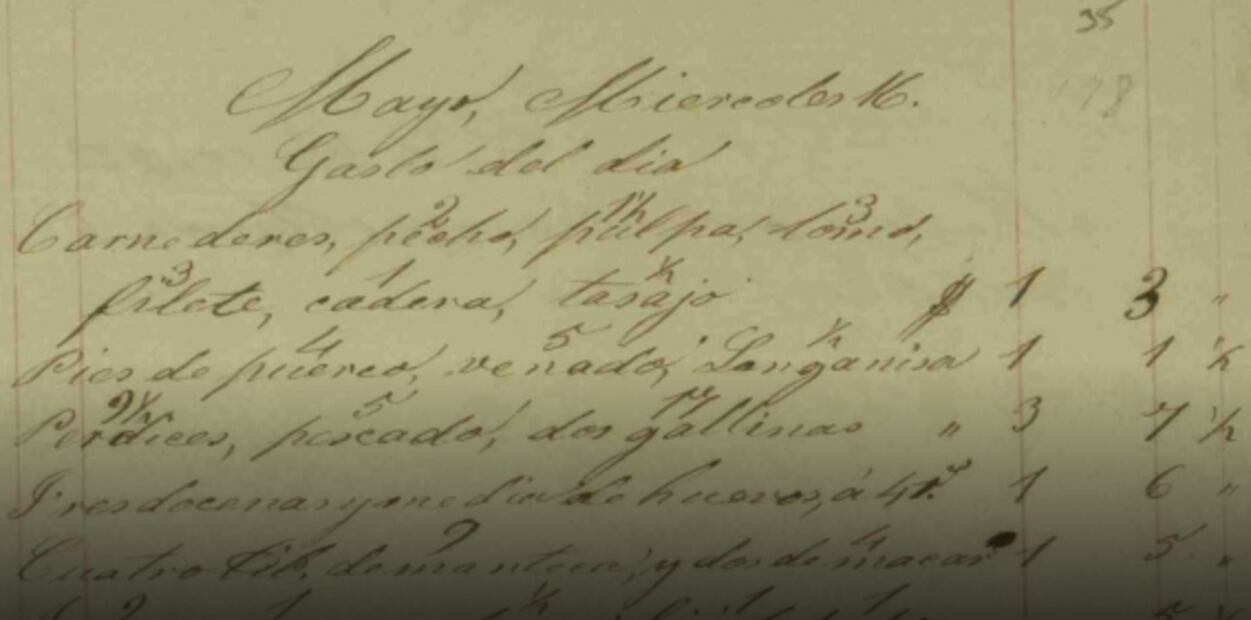 35
178
Mayo, Miercoles 16.
Gasto del dia
Carne de res, pecho, 2 pulpa, 1½ lomo, 3
filete, 3 cadera, 1 tasajo ½ $ 1 3 "
Pies de puerco, 4 venado, 5 Longanisa ½ 1 1 ½
Perdices, 9½ pescado, 5 dos gallinas 17 " 3 7 ½
Tres docenas y media de huevos, á 4 r.s 1 6 "
Cuatro lib. de manteca, 9 y dos de macar 4 1 5 "